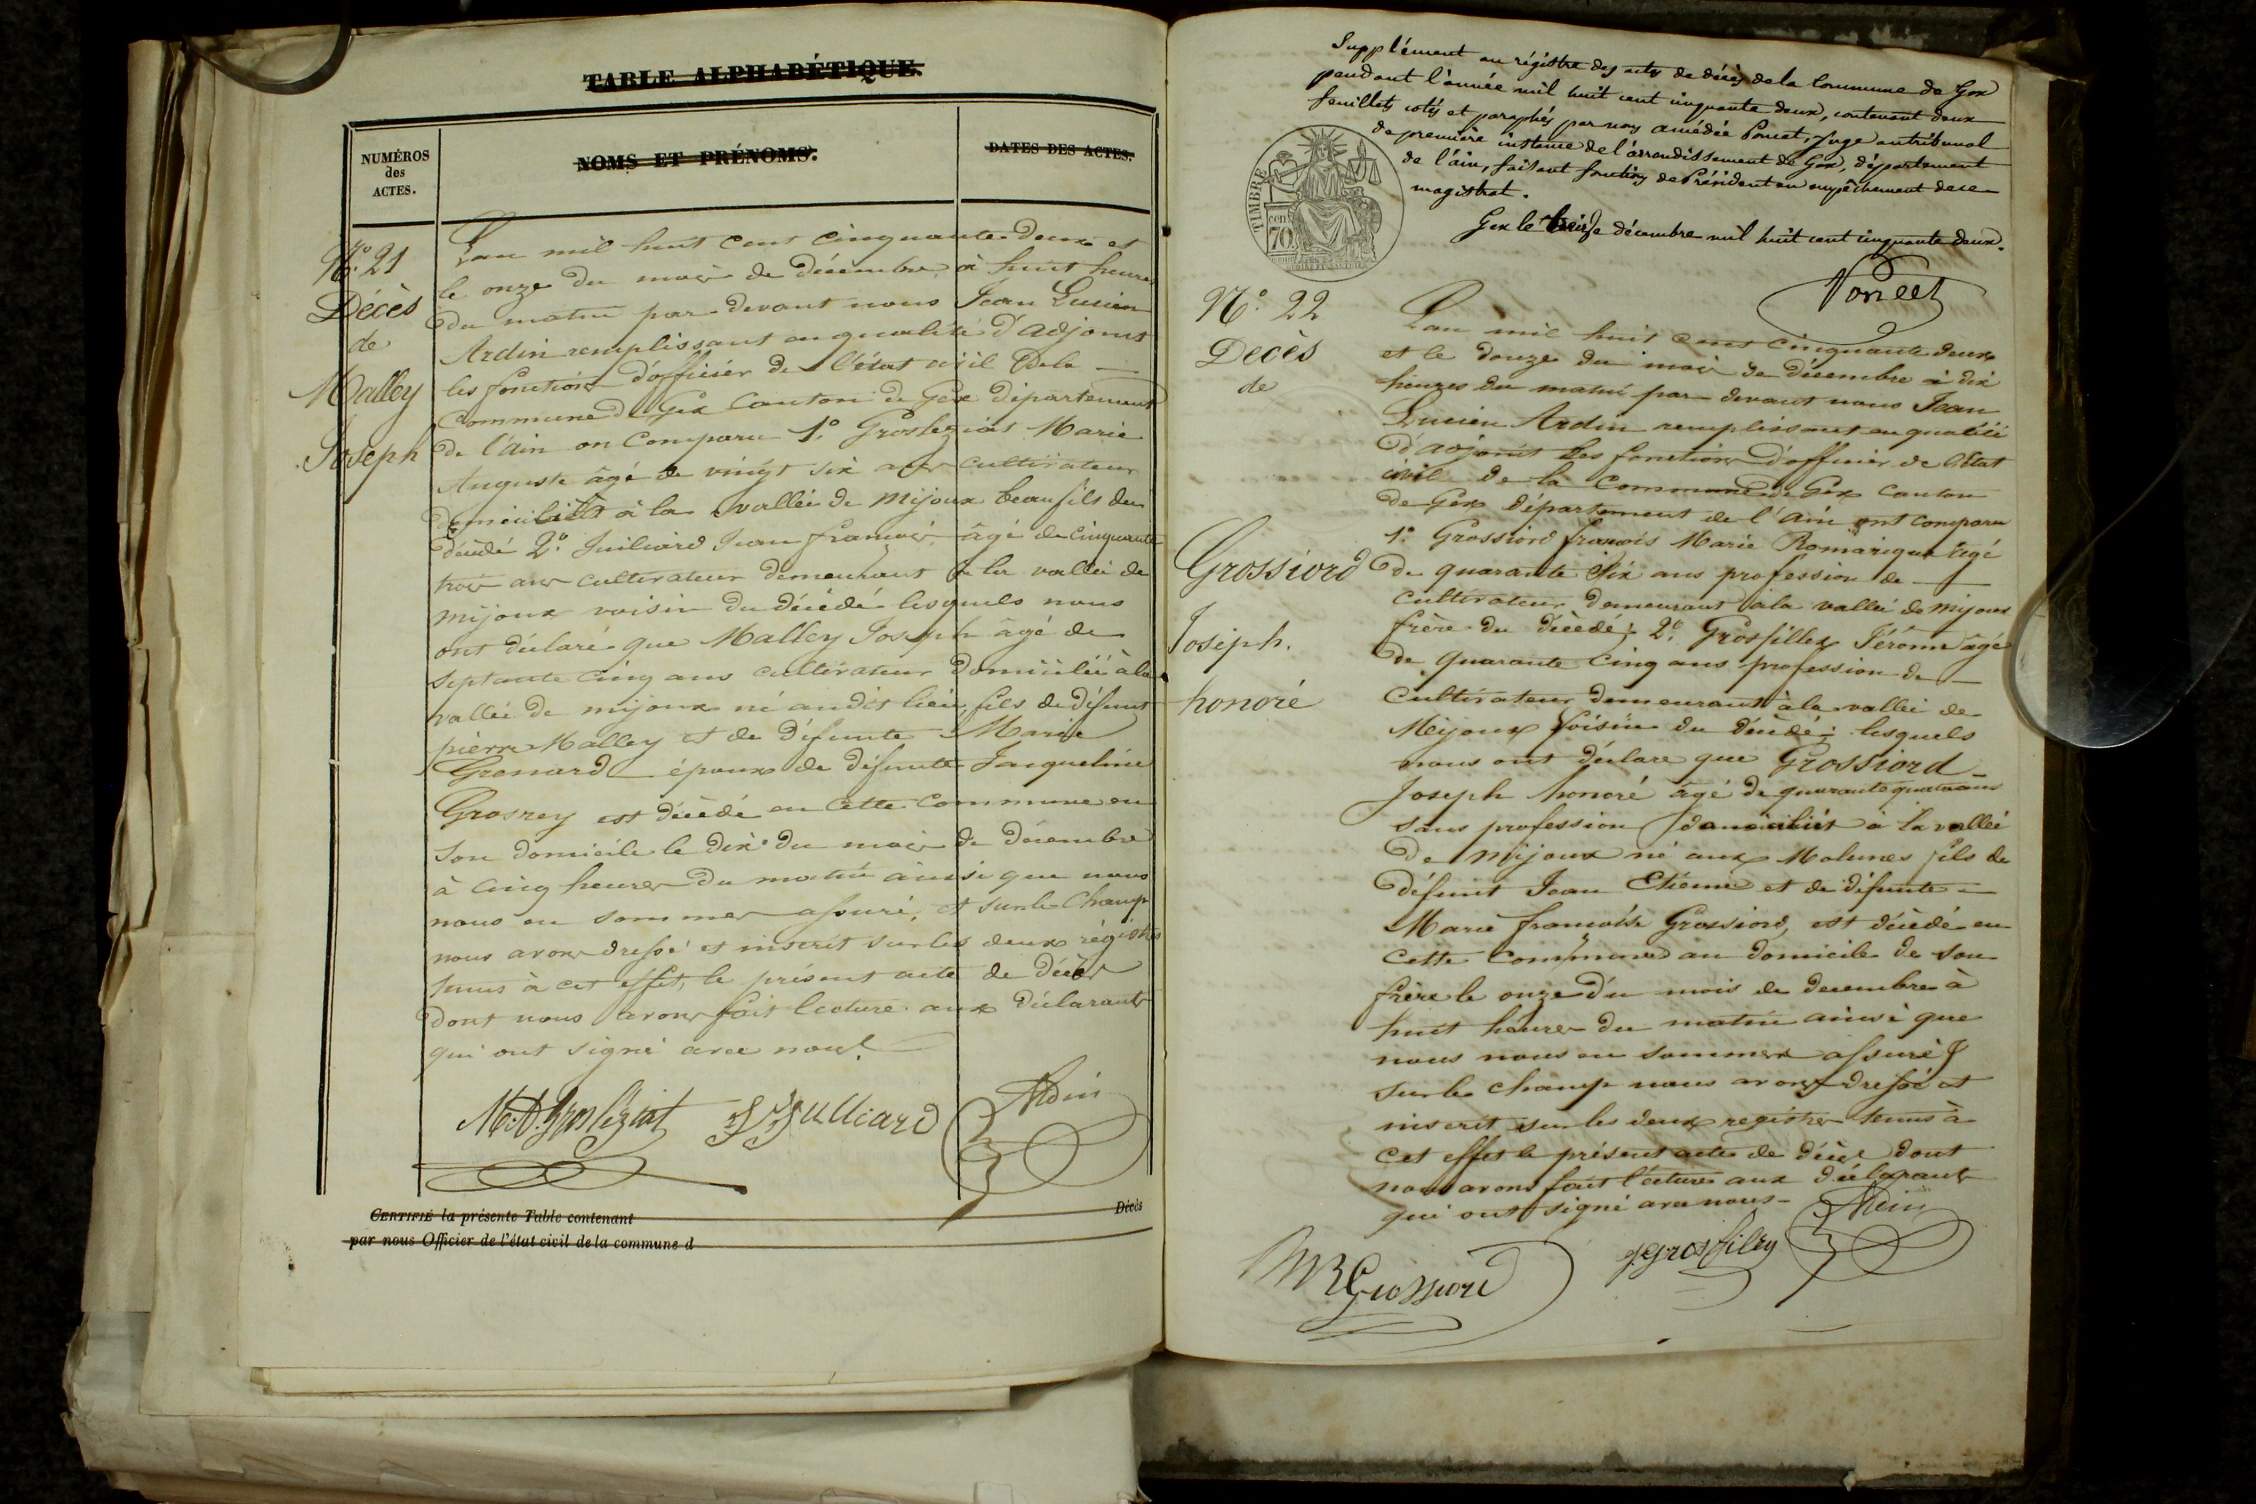 TABLE ALPHABÉTIQUE.
NUMÉROS
des
ACTES.
NOMS ET PRÉNOMS.
DATES DES ACTES.
N.o 21
Décès
de
Malley
Joseph
L'an mil huit cent cinquante deux et
le onze du mois de décembre à huit heures
du matin par devant nous Jean Lucien
Ardin remplissant en qualité d'adjoint
les fonctions d'officier de l'état civil de la
commune de Gex canton de Gex département
de l'ain on comparu 1.o Groslezias Marie
Auguste âgé de vingt six ans cultivateur
domicilié à la vallée de mijoux beau fils du
décédé 2.o Juilliard Jean françois âgé de cinquante
trois ans cultivateur demeurant à la vallée de
mijoux voisin du décédé lesquels nous
ont déclaré que Malley Joseph âgé de
septante cinq ans cultivateur domicilié à la
vallée de mijoux né au dit lieu, fils de défunt
pierre Malley et de défunte Marie
Grossard époux de défunte Jacqueline
Grosrey est décédé en cette commune en
son domicile le dix du mois de décembre
à cinq heures du matin ainsi que nous
nous en sommes assuré, et sur le champ
nous avons dressé et inscrit sur les deux régistres
tenus à cet effet, le présent acte de décès
dont nous avons fait lecture aux déclarants
qui ont signé avec nous.
M. A. Groslezias J F Juilliard Ardin
CERTIFIÉ la présente Table contenant Décès
par nous Officier de l'état civil de la commune d
Supplément au régistre des actes de décès de la Commune de Gex
pendant l'année mil huit cent cinquante deux, contenant deux
feuillets cotés et paraphés par nous amédée Poncet, Juge au tribunal
de première instance de l'arrondissement de Gex, département
de l'ain, faisant fonctions de Président en empêchement de ce
magistrat.
Gex le treize décembre mil huit cent cinquante deux.
Poncet
TIMBRE
cen
70
N.o 22
Decès
de
Grossiord
Joseph.
honoré
L'an mil huit cent cinquante deux
et le douze du mois de décembre à dix
heures du matin par devant nous Jean
Lucien Ardin remplissant en qualité
d'adjoint les fonctions d'officier de l'état
civil de la commune de Gex canton
de Gex département de l'ain ont comparu
1.o Grossiord françois Marie Romarique âgé
de quarante six ans profession de
cultivateur demeurant à la vallée de mijoux
frère du décédé; 2.o Grosfillex Jérôme âgé
de quarante cinq ans profession de
cultivateur demeurant à la vallée de
Mijoux voisin du décédé; lesquels
nous ont déclaré que Grossiord
Joseph honoré âgé de quarante quatre ans
sans profession domicilié à la vallée
de mijoux né aux Molunes fils de
défunt Jean Etienne et de défunte
Marie françoise Grossiord, est décédé en
cette commune au domicile de son
frère le onze du mois de decembre à
huit heures du matin ainsi que
nous nous en sommes assuré &
sur le champ nous avons dressé et
inscrit sur les deux registres tenus à
cet effet le présent acte de décès dont
nous avons fait lecture aux déclarants
qui ont signé avec nous
M R Grossiord J. Grosfilley Ardin